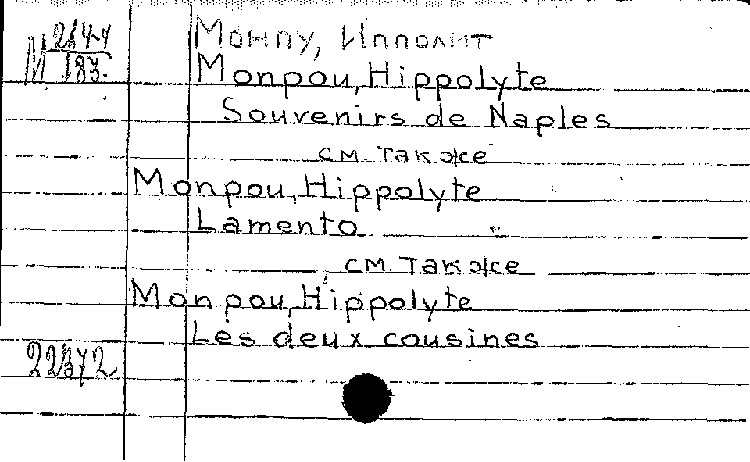 М 264-4
183.
Монпу, Ипполит
Monpou, Hippolyte
Souvenirs de Naples
см. также
Monpou, Hippolyte
Lamento
см. также
Monpou, Hippolyte
Les deux cousines
22372